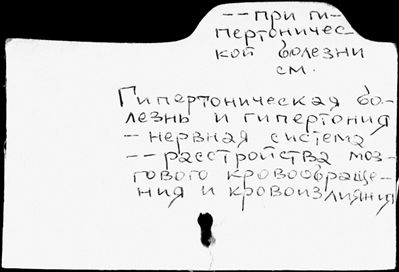 -- при ги-
пертоничес-
кой болезни
см.
Гипертоническая бо-
лезнь и гипертония
- нервная система
-- расстройства моз-
гового кровообраще-
ния и кровоизлияния